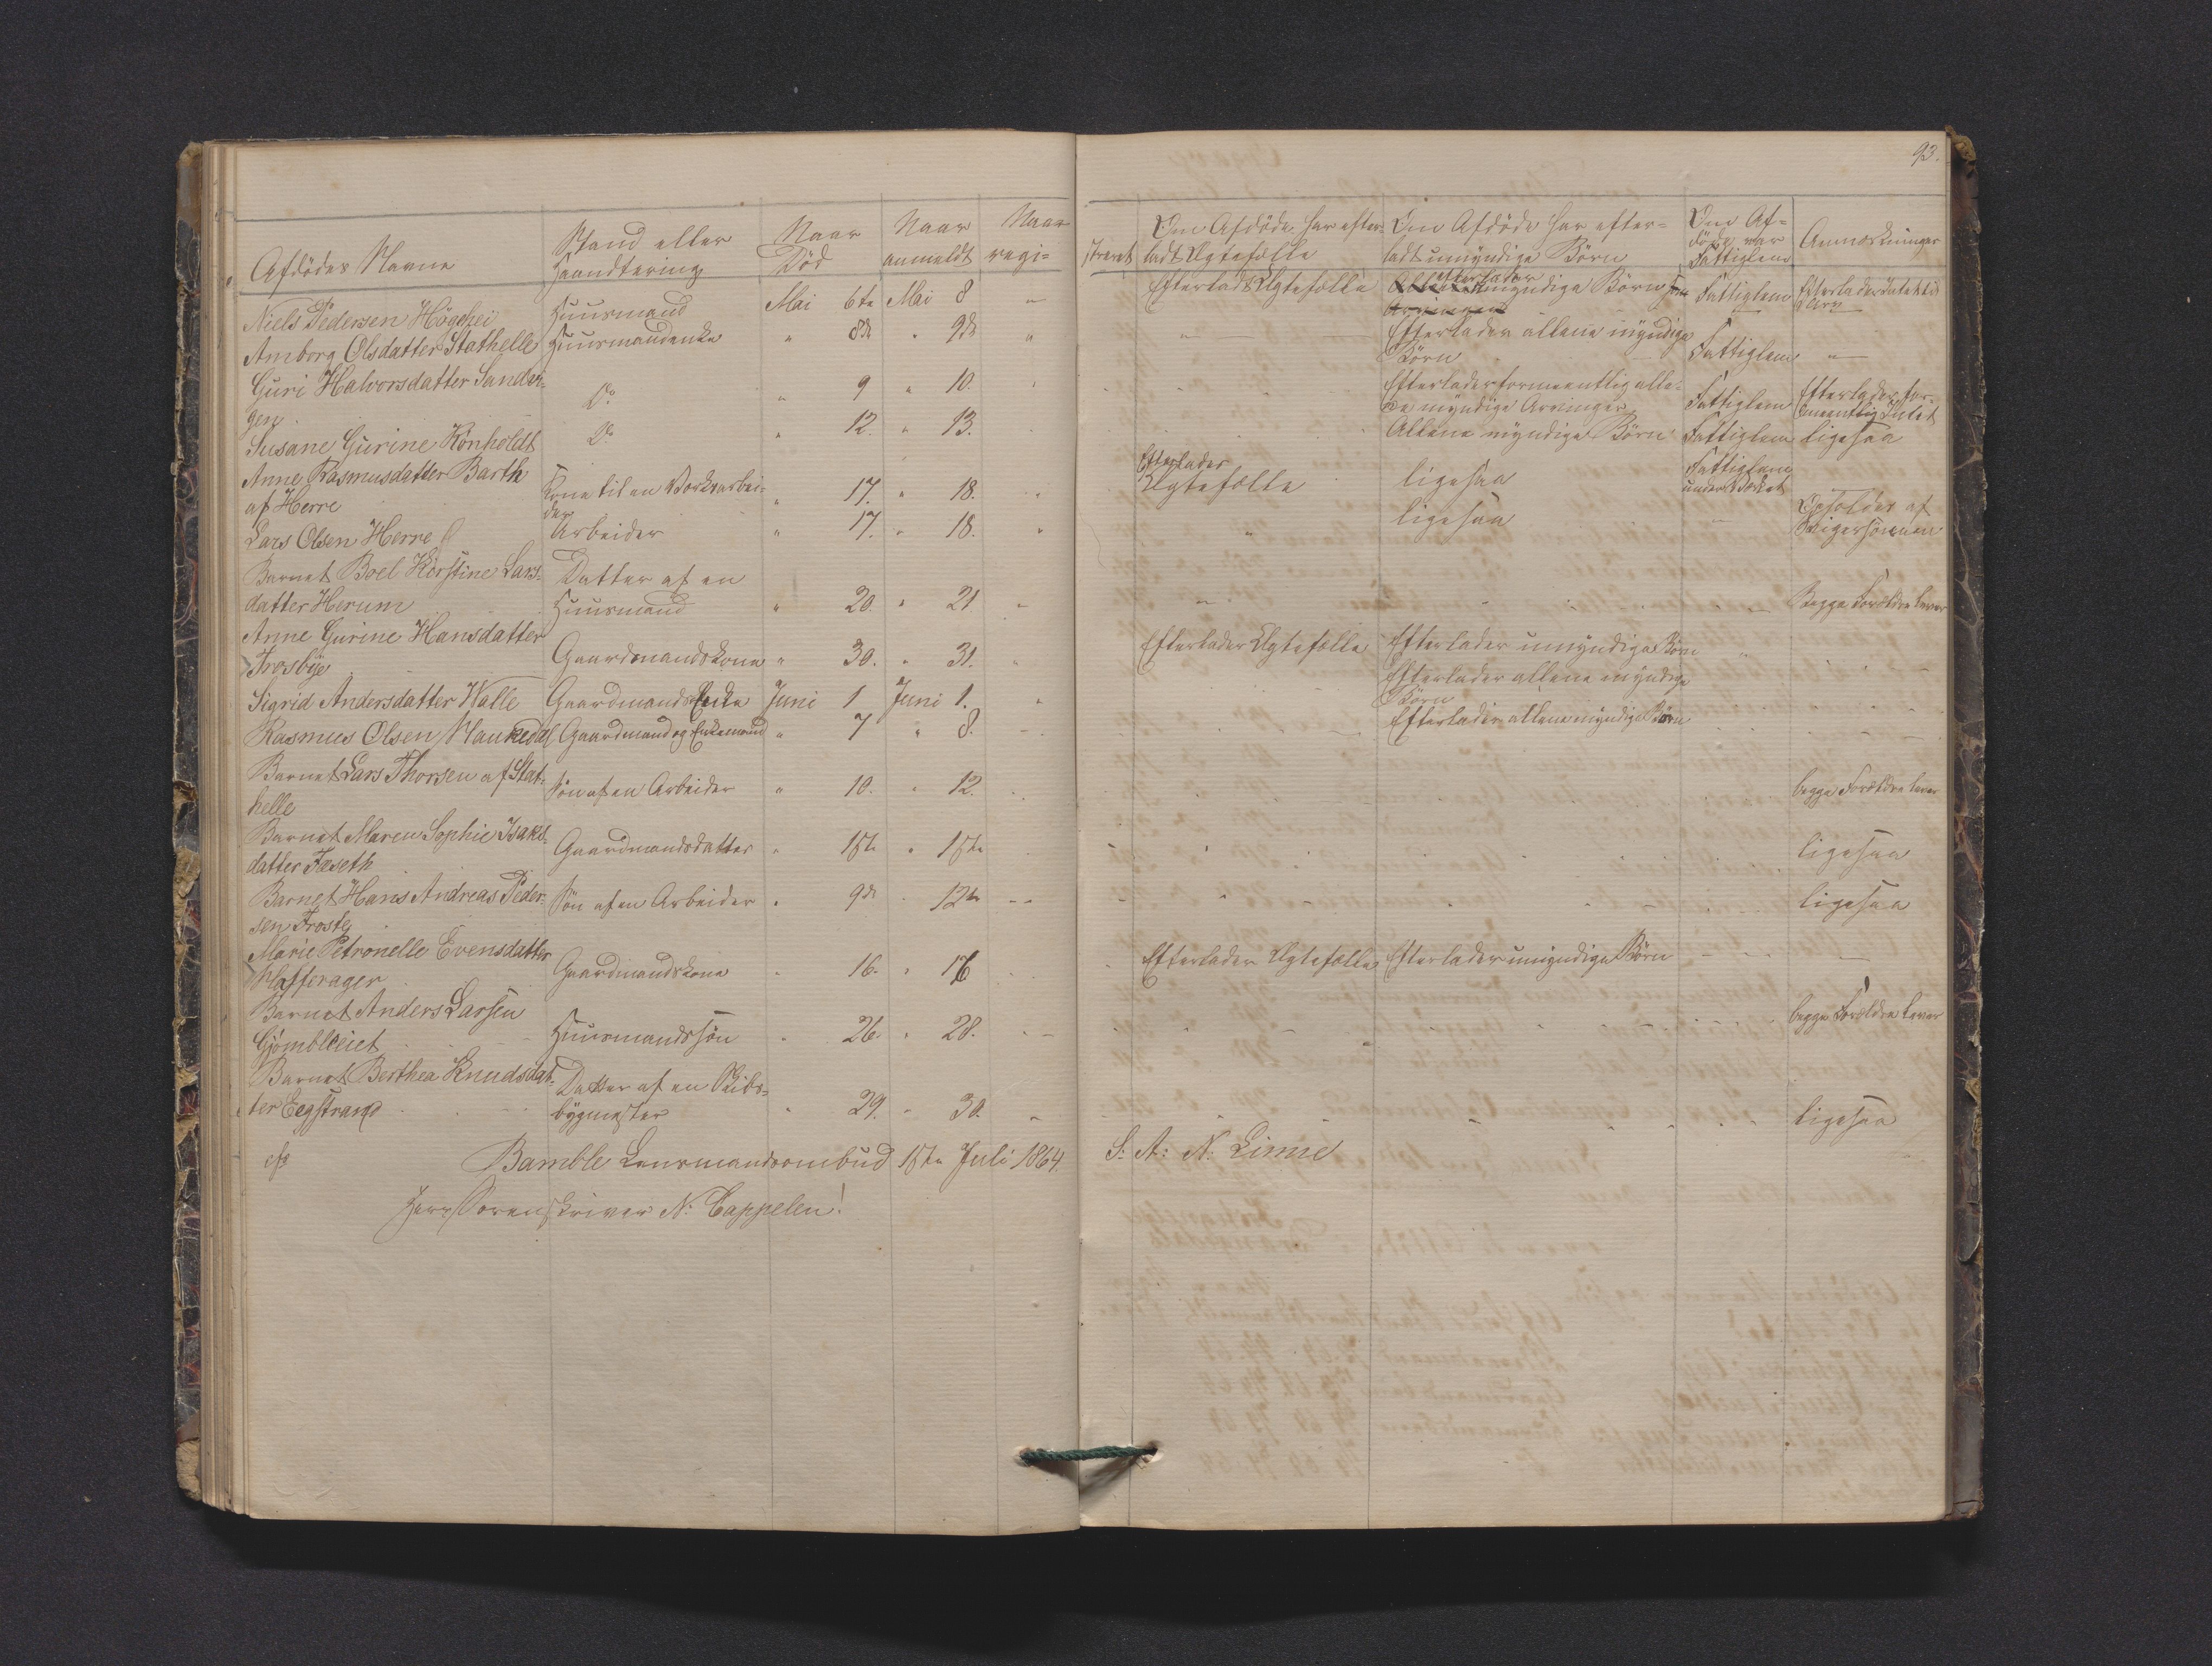 93.
Afdödes Navne Stand eller Haandtering Naar Död Naar anmeldt Naar regi= streret Om Afdöde har efter= ladt Ægtefælle Om Afdöde har efter= ladt umyndige Börn Om Af= döde var Fattiglem Anmærkninger
Niels Pedersen Högehei Huusmand Mai 6te Mai 8 " Efterlader Ægtefælle efterlader myndige Börn Fattiglem Efterlader Intet til Arv
Amborg Olsdatter Stathelle Huusmandenke " 8de " 9de " " Efterlader allene myndige
Börn Fattiglem "
Guri Halvorsdatter Sandvi=
gen Do " 9 " 10. Efterlader formeentlig alle=
ne myndige Arvinger Fattiglem Efterlader for=
meentlig Intet
Susane Gurine Rönholdt Do " 12. " 13. Allene myndige Börn Fattiglem ligesaa
Anne Rasmusdatter Barth
af Herre Kone til en Værksarbei=
der " 17. " 18. " Efterlader
Ægtefælle ligesaa Fattiglem
under Værket
Lars Olsen Herre Arbeider " 17. " 18. " " ligesaa Opholdes af
Svigersönnen
Barnet Boel Kirstine Lars=
datter Herum Datter af en
Huusmand " 20. " 21 " Begge Forældre lever
Anne Gurine Hansdatter
Trosbye Gaardmandskone " 30. " 31. " Efterlader Ægtefælle Efterlader umyndige Börn
Sigrid Andersdatter Walle Gaardmands Enke Juni 1 Juni 1. " Efterlader allene myndige
Börn
Rasmus Olsen Haukedal Gaardmand og Enkemand " 7 " 8. Efterlader allene myndige Börn
Barnet Lars Thorsen af Stat=
helle Sön af en Arbeider " 10. " 12. begge Forældre lever
Barnet Maren Sophie Isaks=
datter Fæseth Gaardmandsdatter " 15te " 15te ligesaa
Barnet Hans Andreas Peder=
sen Froste Sön af en Arbeider " 9de " 12te ligesaa
Marie Petronelle Evensdatter
Hafferager Gaardmandskone " 16. " 16 Efterlader Ægtefælle Efterlader umyndige Börn
Barnet Anders Larsen
Gjömleeiet Huusmandssön " 26 " 28. begge Forældre lever
Barnet Berthea Knudsdat=
ter Eegstrand Datter af en Skibs=
bygmester " 29. " 30. ligesaa
Bamble Lensmandsombud 15te Juli 1864. S: A: N: Linne
Herr Sorenskriver N: Cappelen!